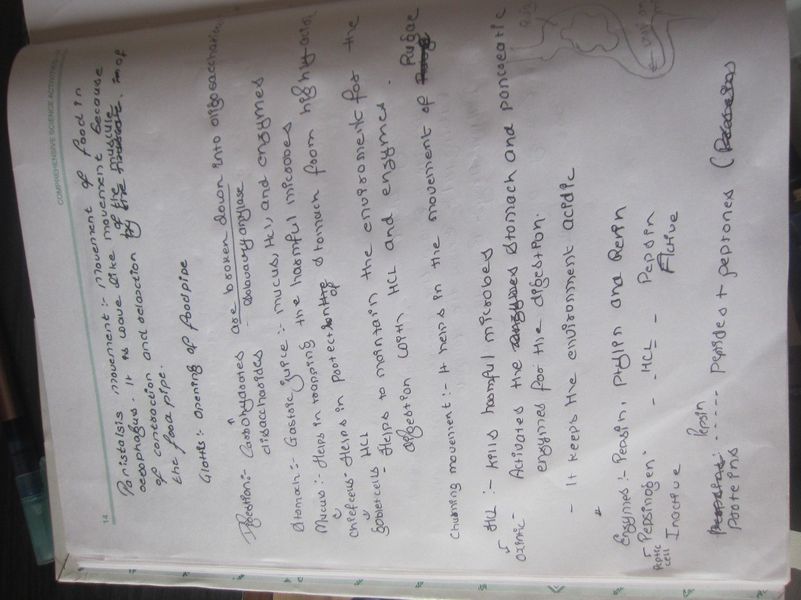 COMPREHENSIVE SCIENCE ACTIVITIES
14
Paristalsis movement :- movement of food in
oesophagus. It is wave like movement because
of contraction and relaxction by the of the muscle of
the food pipe.
Glottis :- opening of foodpipe
Digestion:- Carbohydrates are broken down into oligosaccharides
disaccharides salivary amylase
Stomach :- Gastric juice :- mucus, HCl, and enzymes
Mucus :- Helps in trapping the harmful microbes
chiefcells - Helps in Portection of the stomach from highly acidic
Gobletcells HCL
- Helps to maintain the enviroment for the
digestion with HCL and enzymes.
Churning movement :- It helps in the movement of Rugae
HCL :- kills harmful microbes
oxintic - Activates the stomach and pancreatic
enzymes for the digestion.
- It keeps the environment acidic
Enzymes :- Pepsin, ptylin and Renin
Pepsinogen - HCL - Pepsin
Peptic cell
Inactive Active
Pepsin
Proteins ...... peptides + peptones